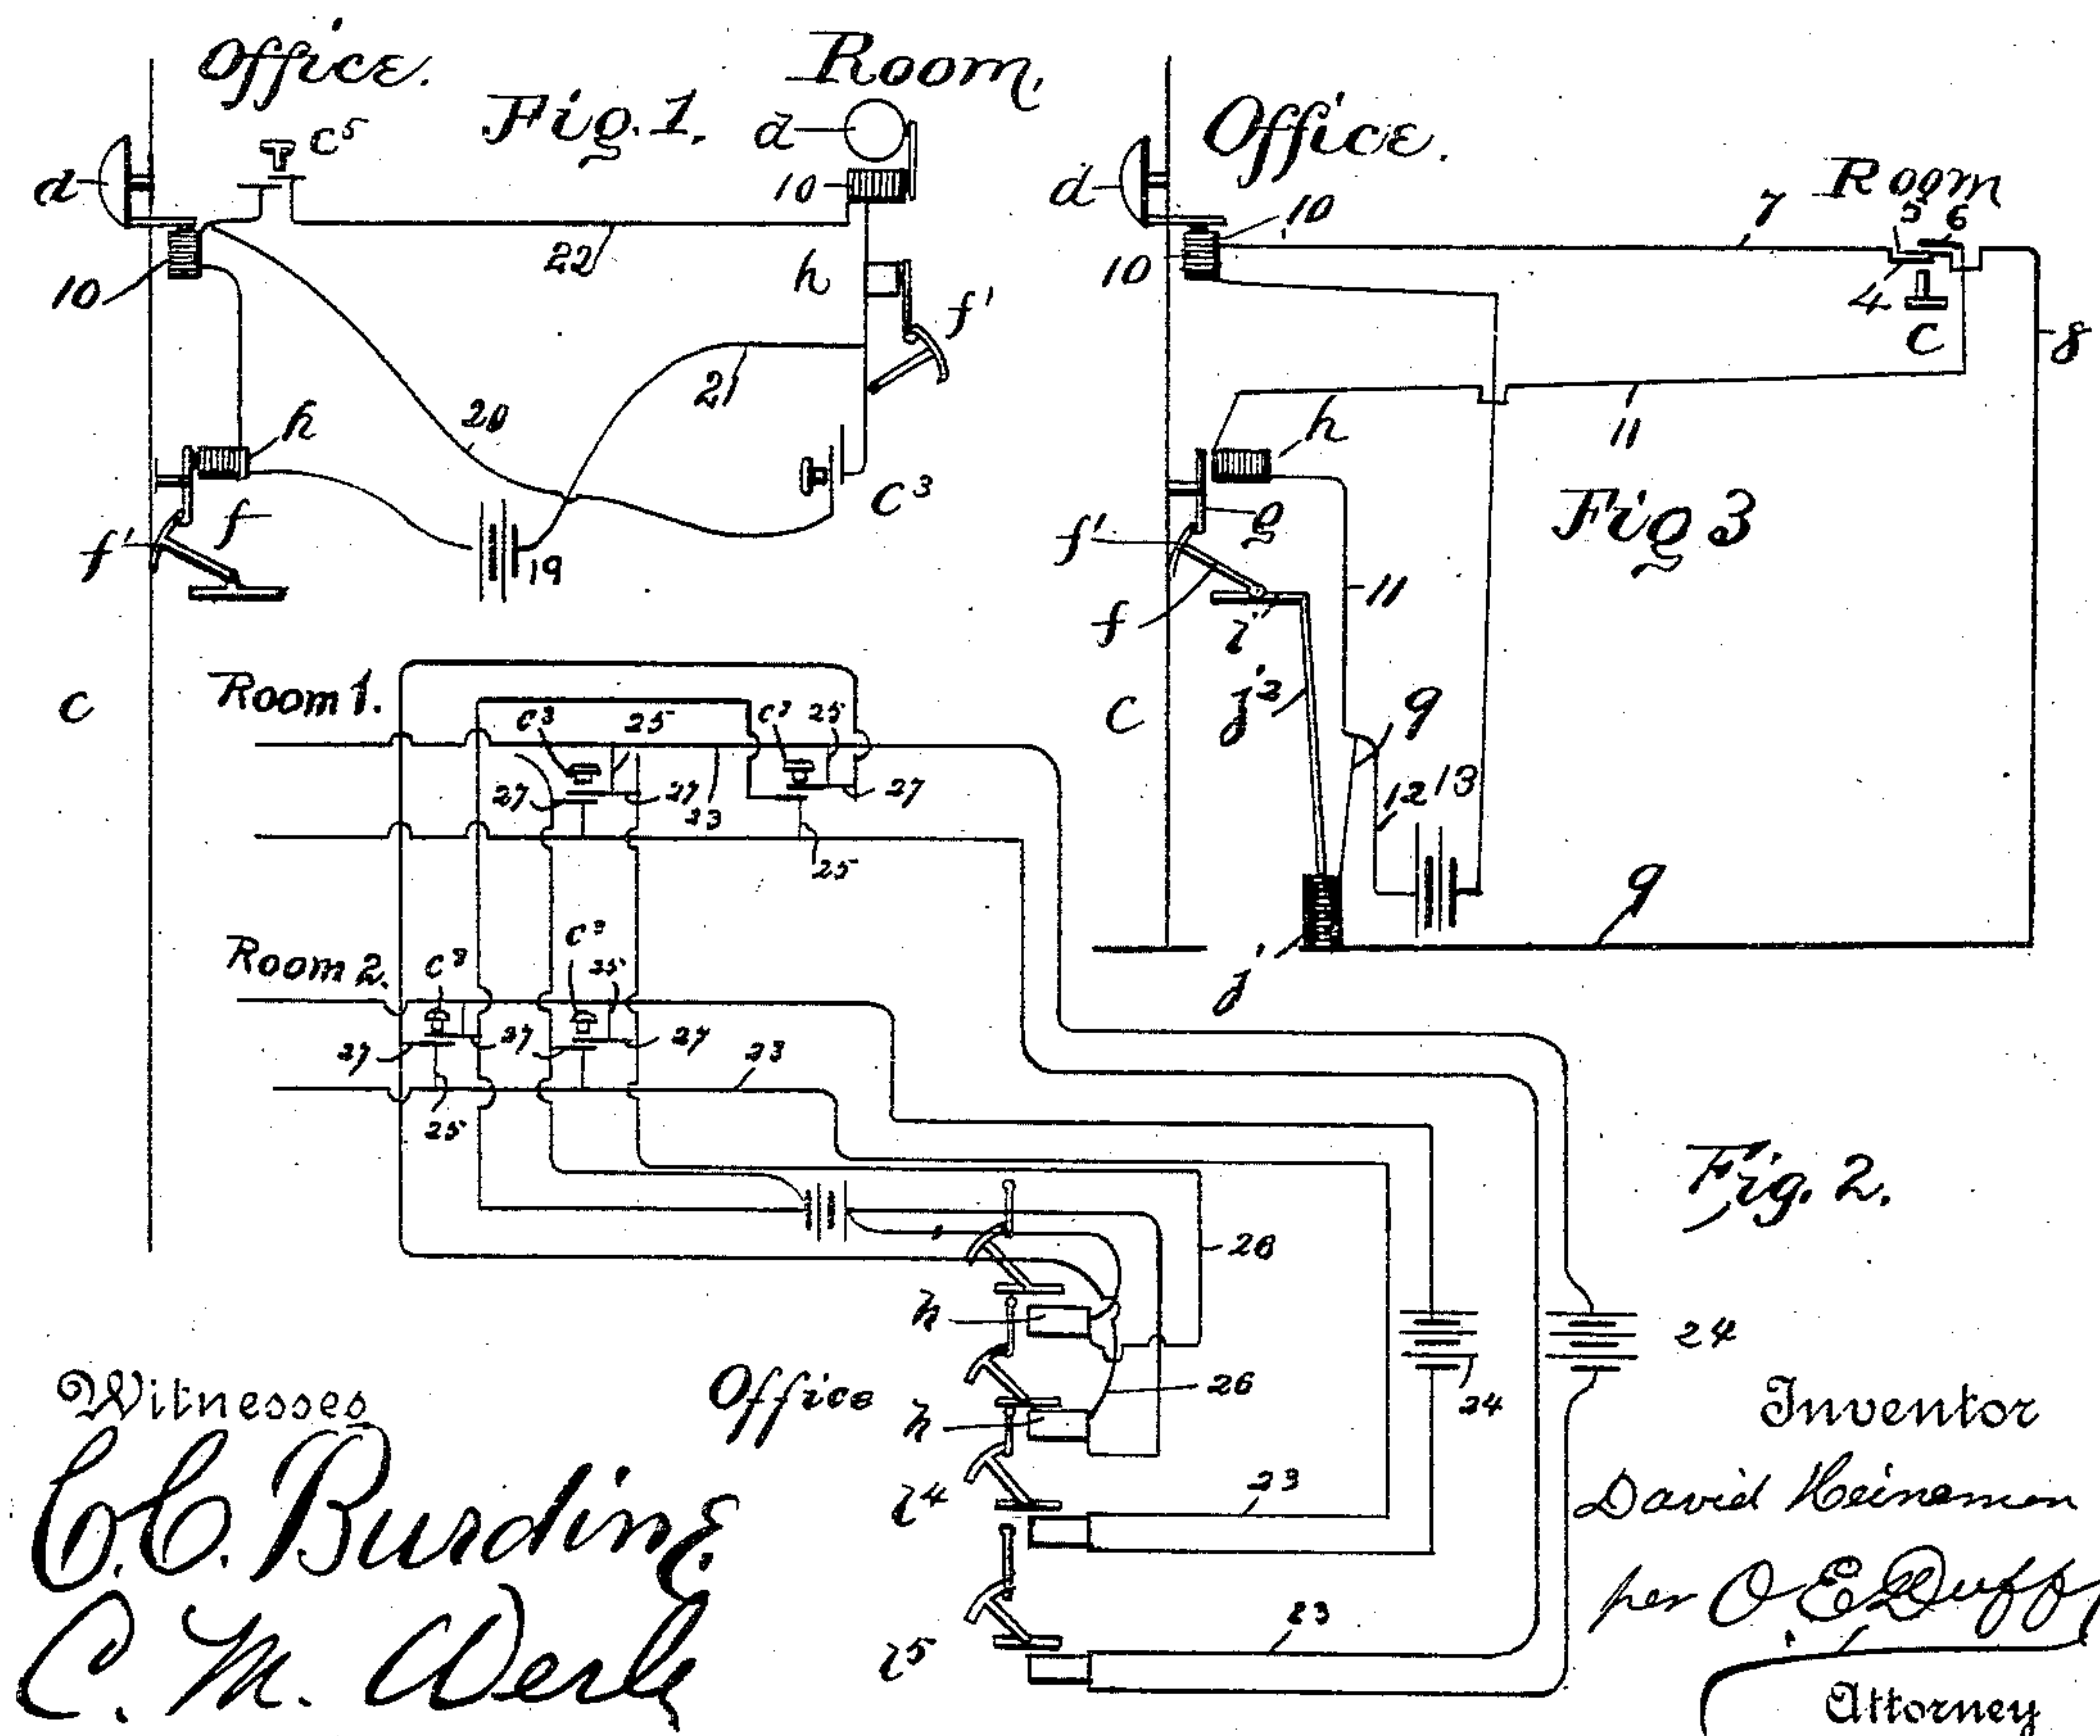 Office.
Fig. 1.
Room,
d
c⁵
d
10
22
10
h
f'
21
20
h
c³
f
f'
19
c
Office.
Room
d
10
7
5 6
10
4
c
8
h
11
Fig 3
g
f'
11
f
i''
j²
9
c
12 13
9
j'
Room 1.
c³
25
c³
25
27
27
23
27
25
Room 2.
c³
c³
25
27
27
27
23
25
Fig. 2.
26
h
24
24
Office
h
26
i⁴
23
i⁵
23
Witnesses
C. C. Burdine
C. M. Werle
Inventor
David Heineman
per O. E. Duffy
Attorney